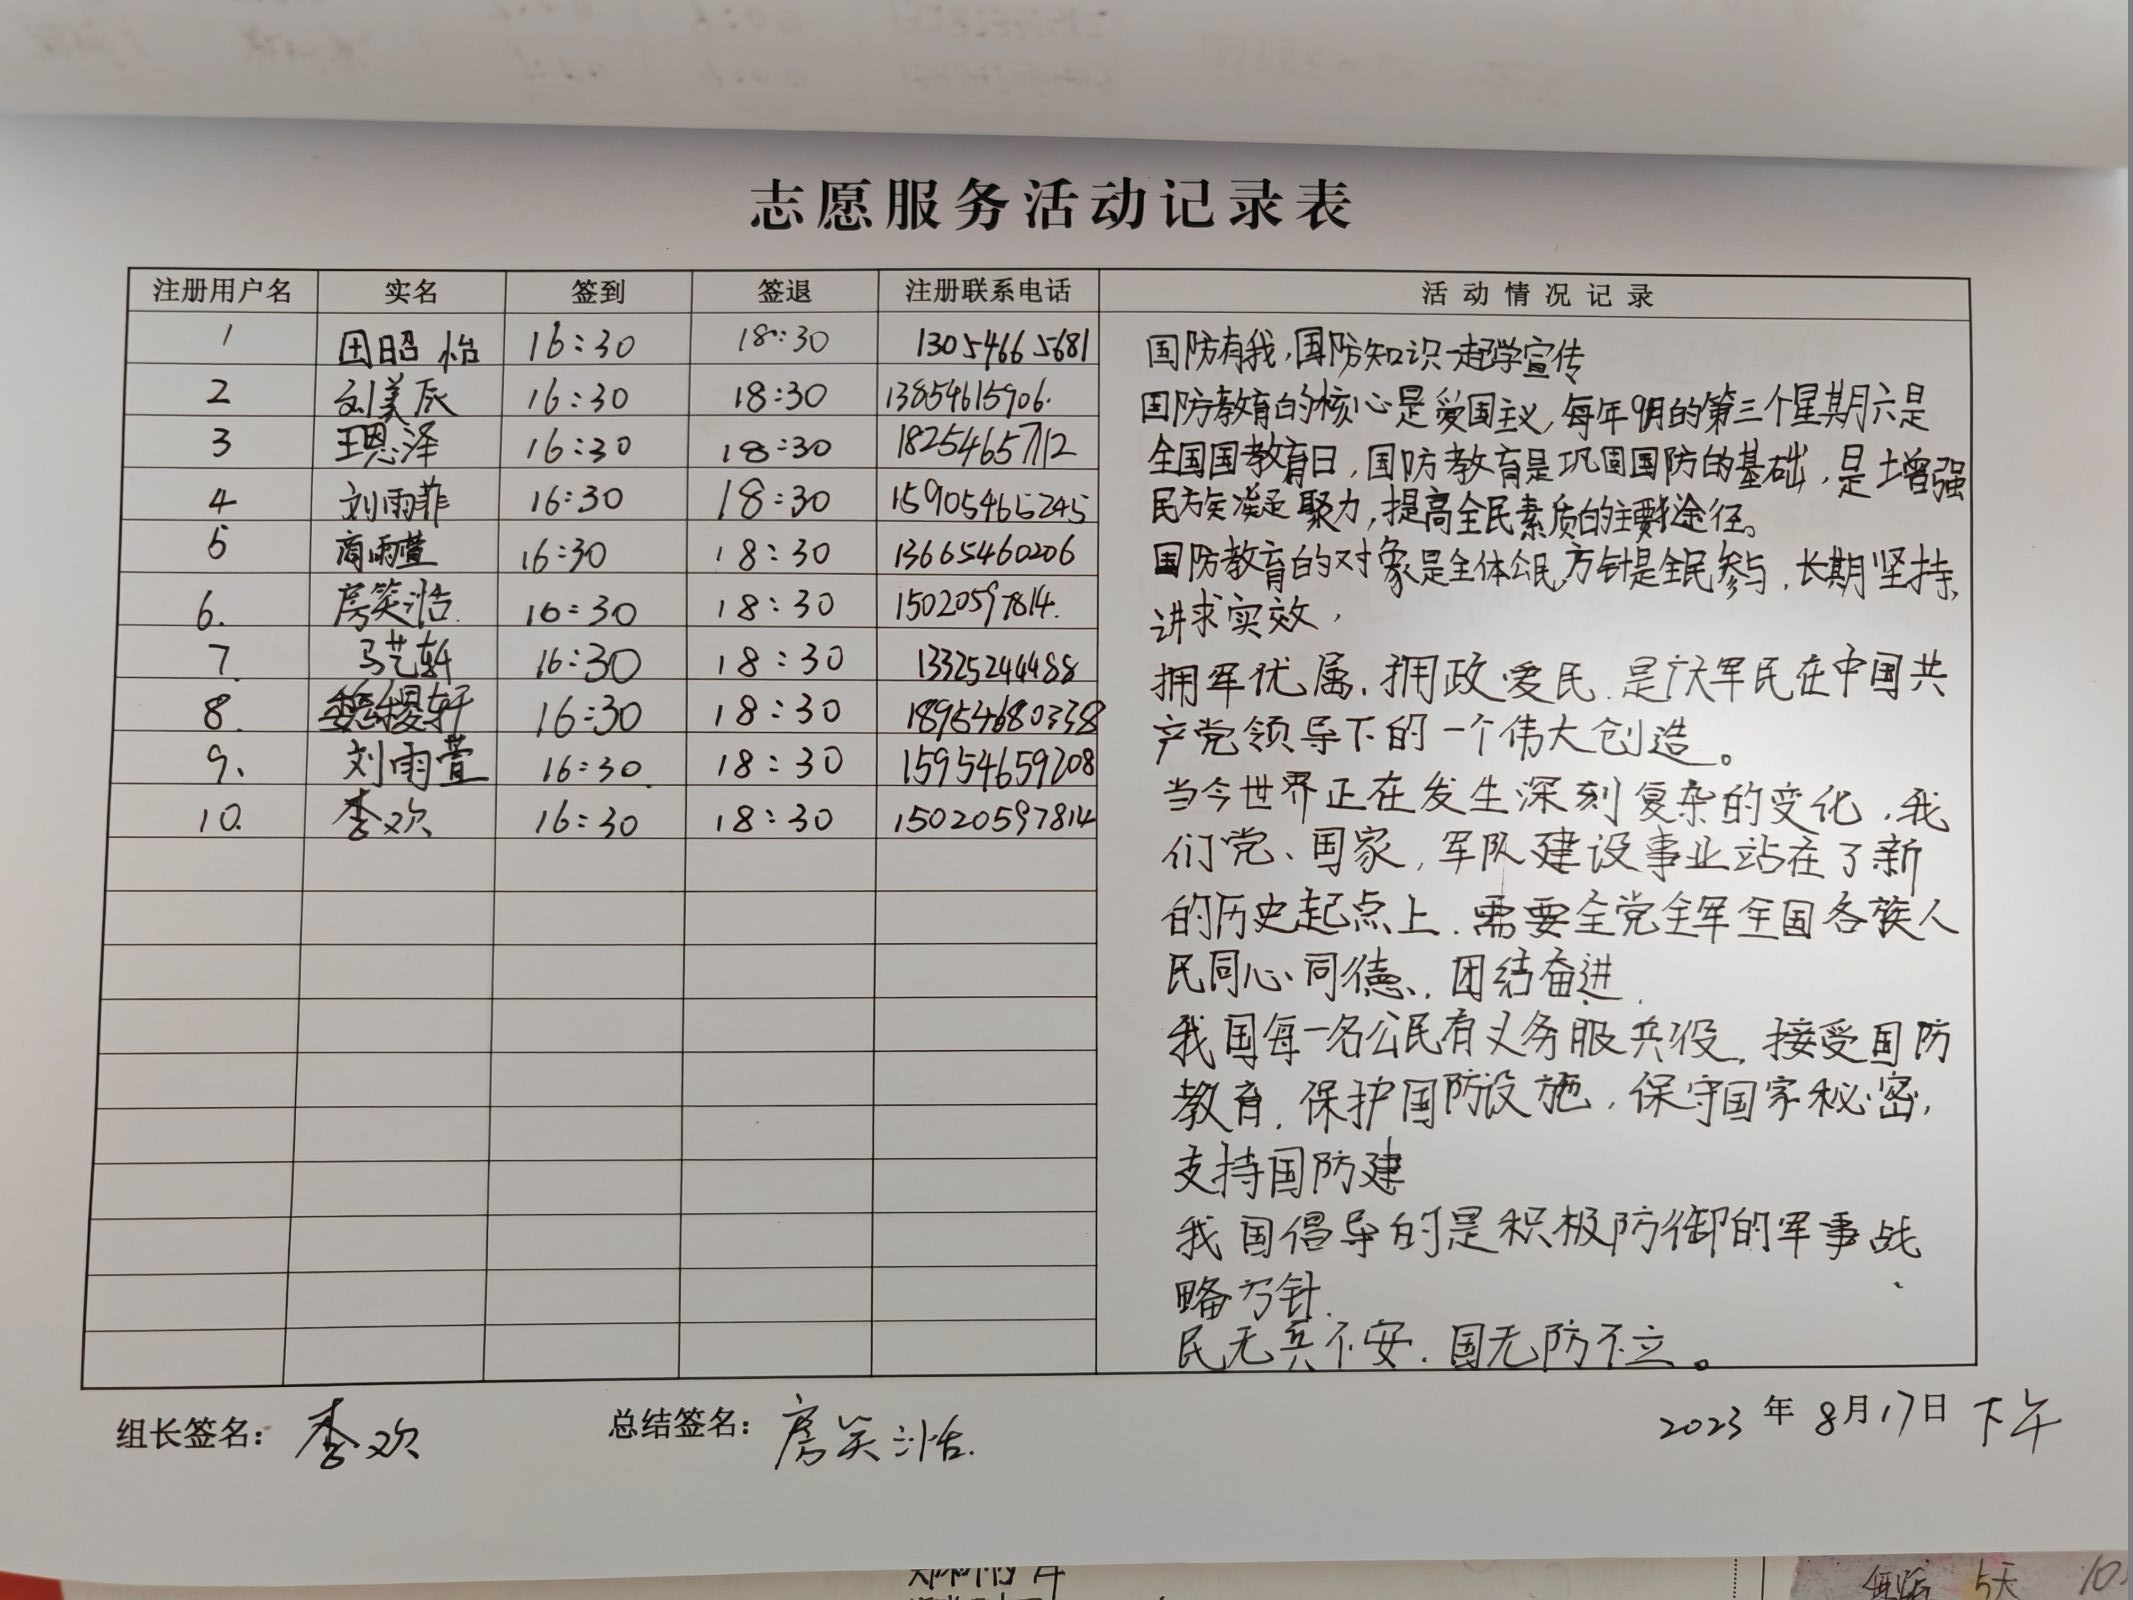 志愿服务活动记录表
注册用户名 实名 签到 签退 注册联系电话 活动情况记录
1 田昭怡 16:30 18:30 13054665681
2 刘美辰 16:30 18:30 13854615906.
3 王思泽 16:30 18:30 18254657112
4 刘雨菲 16:30 18:30 15905465245
5 商雨萱 16:30 18:30 13665460206
6. 房笑浩. 16:30 18:30 15020597814.
7. 马艺轩 16:30 18:30 13325244488
8. 魏稷轩 16:30 18:30 18954680338
9. 刘雨萱 16:30. 18:30 15954659208
10. 李欢 16:30 18:30 15020597814
国防有我,国防知识一起学宣传
国防教育的核心是爱国主义,每年9月的第三个星期六是
全国国教育日,国防教育是巩固国防的基础,是增强
民族凝聚力,提高全民素质的主要途径。
国防教育的对象是全体公民,方针是全民参与,长期坚持、
讲求实效,
拥军优属、拥政爱民、是广大军民在中国共
产党领导下的一个伟大创造。
当今世界正在发生深刻复杂的变化,我
们党、国家,军队建设事业站在了新
的历史起点上,需要全党全军全国各族人
民同心同德、团结奋进.
我国每一名公民有义务服兵役,接受国防
教育,保护国防设施,保守国家秘密,
支持国防建
我国倡导的是积极防御的军事战
略方针.
民无兵不安,国无防不立。
组长签名: 李欢 总结签名: 房笑浩. 2023年8月17日 下午
5天 10